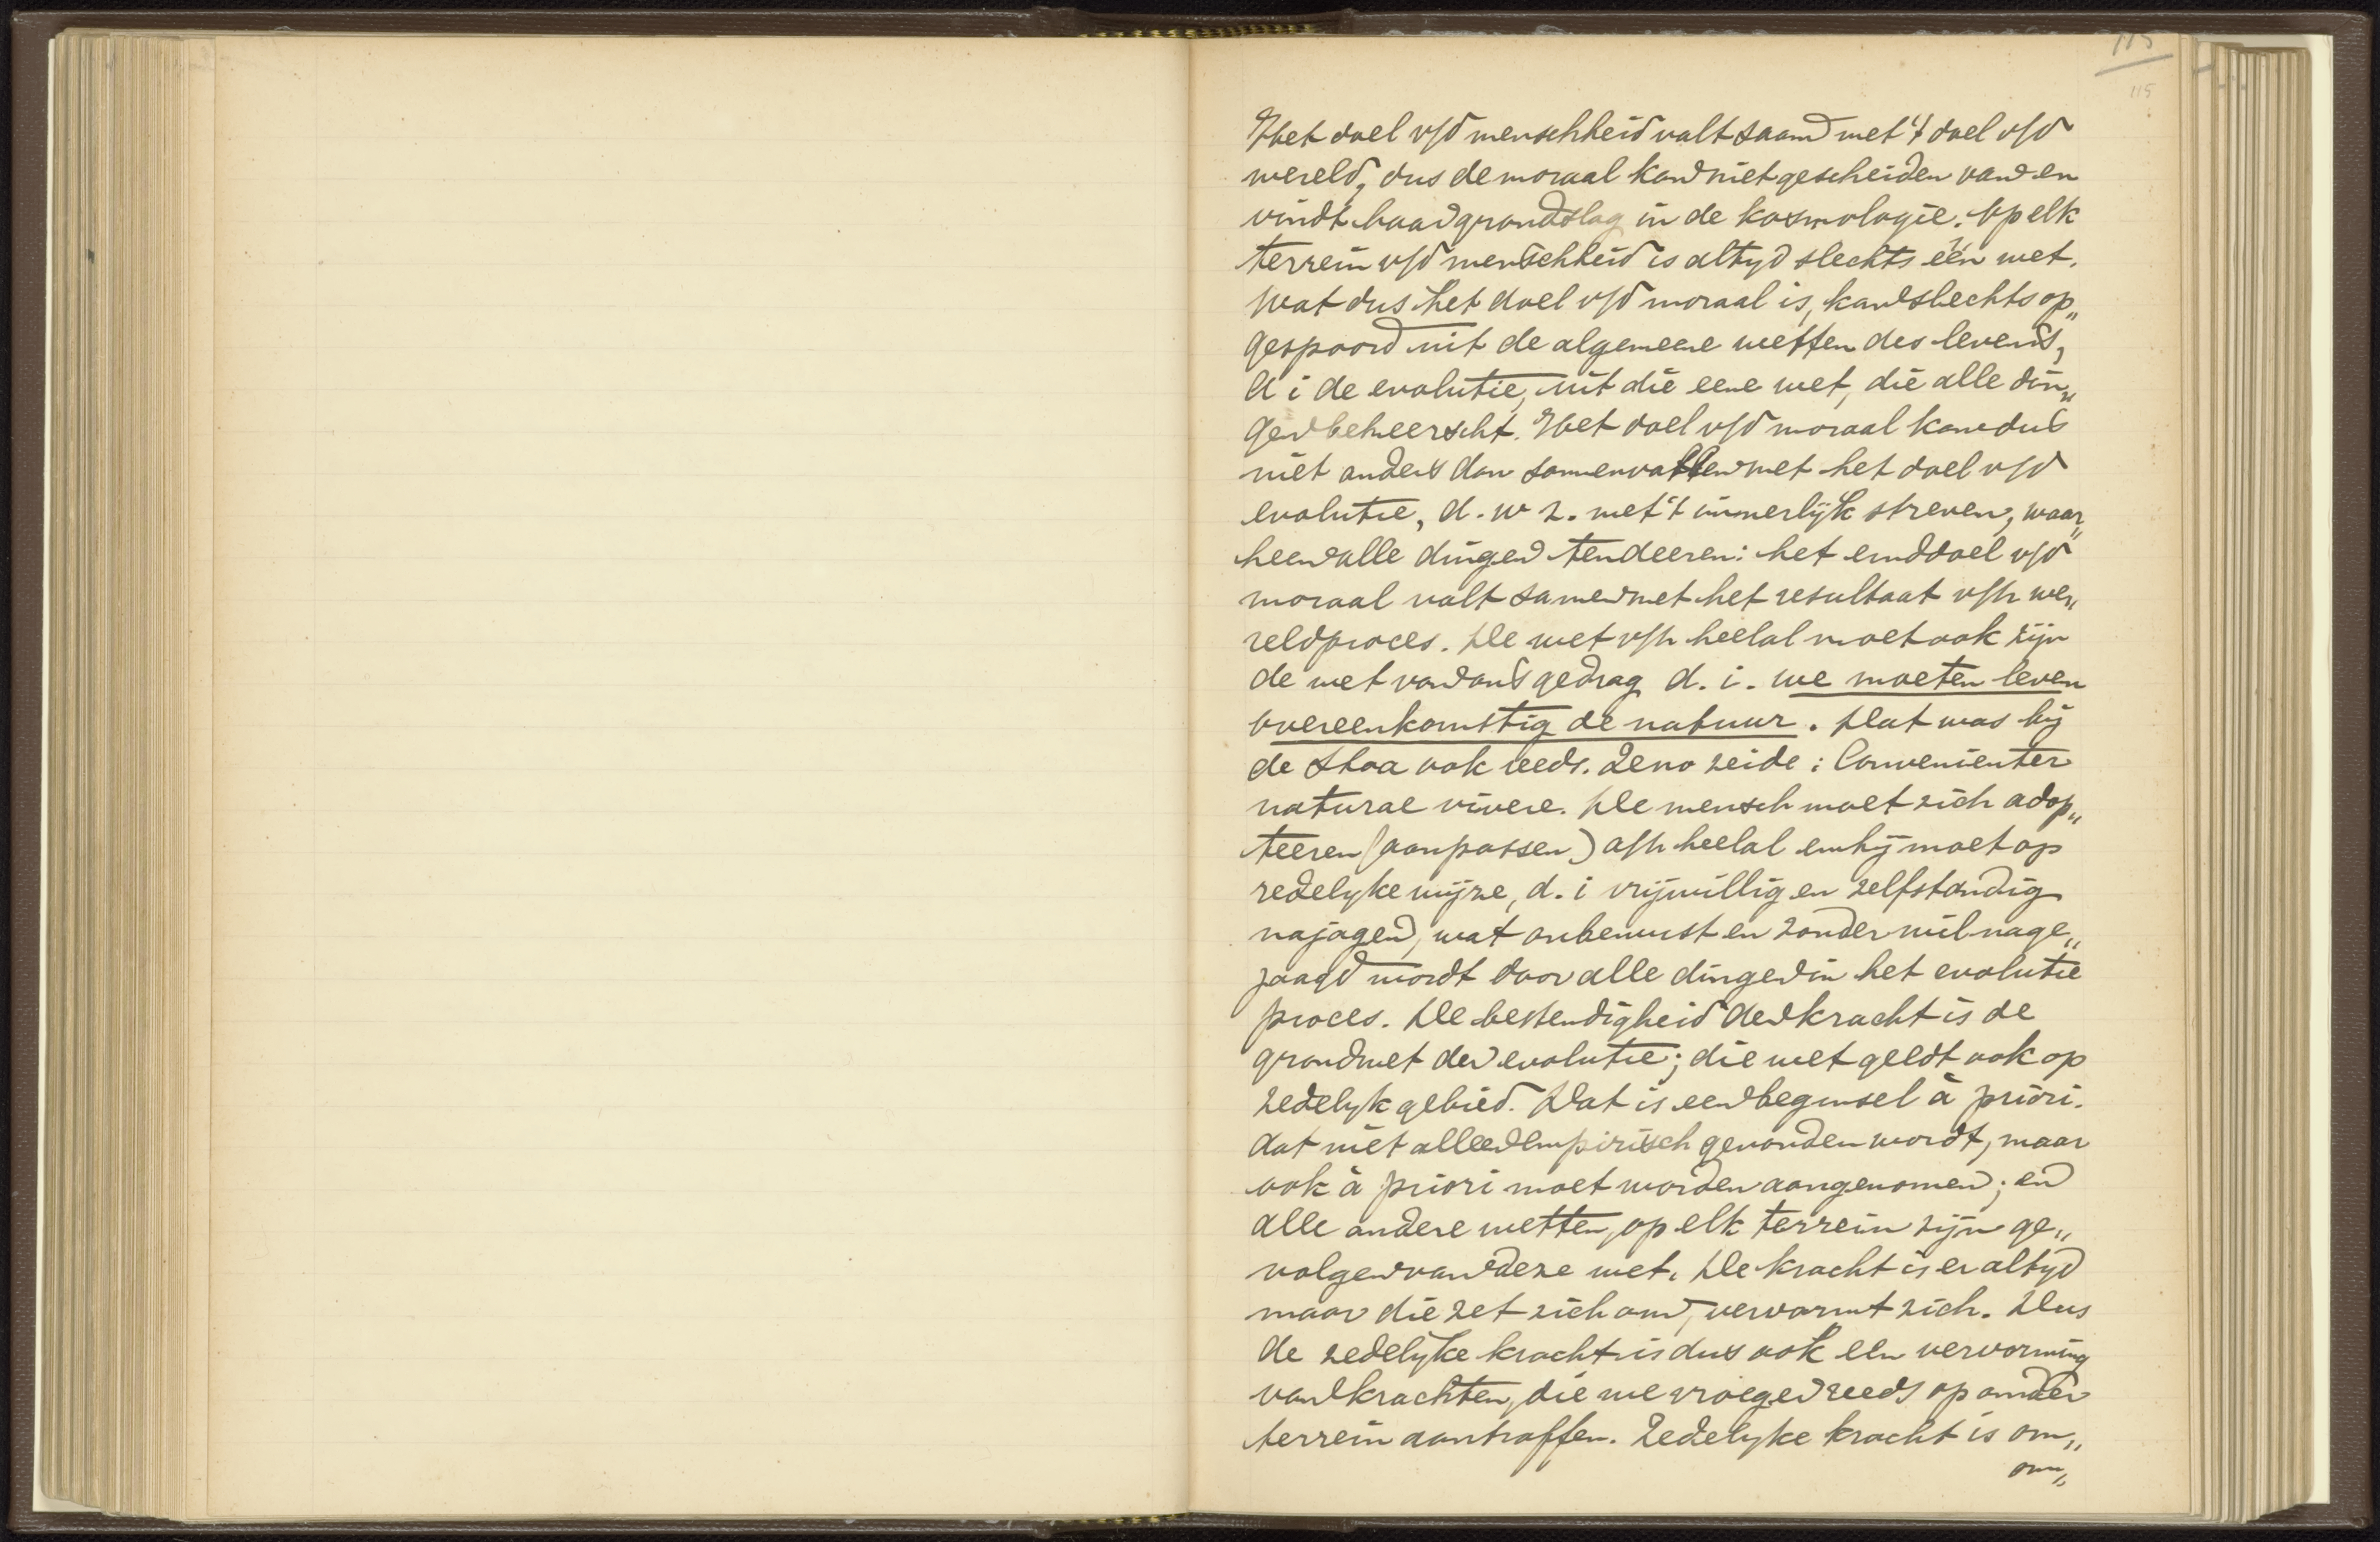 115
115
Het doel v/d menschheid valt saam met 't doel v/d
wereld, dus de moraal kan niet gescheiden van en
vindt haar grondslag in de kosmologie. Op elk
terrein v/d menschheid is altyd slechts één wet.
Wat dus het doel v/d moraal is, kan slechts op„
gespoord uit de algemeene wetten des levens,
d i de evolutie, uit die eene wet, die alle din„
gen beheerscht. Het doel v/d moraal kan dus
niet anders dan samenvallen met het doel v/d
evolutie, d. w z. met 't innerlijk streven, waar„
heen alle dingen tendeeren: het einddoel v/d
moraal valt samen met het resultaat v/h we„
reldproces. De wet v/h heelal moet ook zijn
de wet van ons gedrag d. i. we moeten leven
overeenkomstig de natuur. Dat was bij
de Stoa ook reeds. Zeno zeide: Convenienter
naturae vivere. De mensch moet zich adap„
teeren (aanpassen) a/h heelal en hij moet op
redelyke wijze, d. i vrijwillig en zelfstandig
najagen, wat onbewust en zonder wil nage„
jaagd wordt door alle dingen in het evolutie
proces. De bestendigheid der kracht is de
grondwet der evolutie; die wet geldt ook op
zedelyk gebied. Dat is een beginsel à priori.
dat niet alleen empirisch gevonden wordt, maar
ook à priori moet worden aangenomen; en
alle andere wetten, op elk terrein zijn ge„
volgen van deze wet. De kracht is er altyd
maar die zet zich om, vervormt zich. Dus
de zedelyke kracht is dus ook een vervorming
van krachten, die we vroeger reeds op ander
terrein aantroffen. Zedelyke kracht is om„
om„